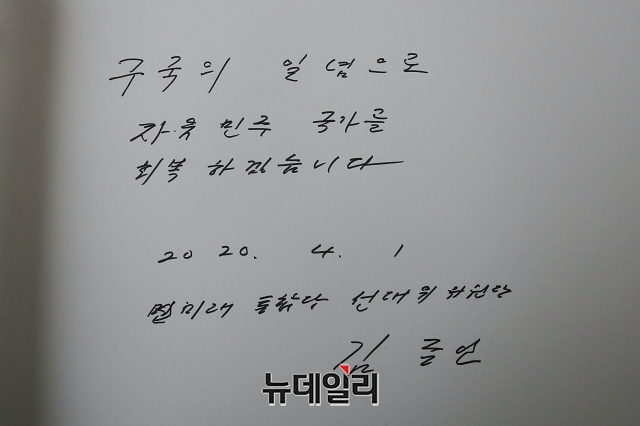 구국의 일념으로
자유 민주 국가를
회복 하겠습니다
2020. 4. 1
미래 통합당 선대위 위원장
김
뉴데일리